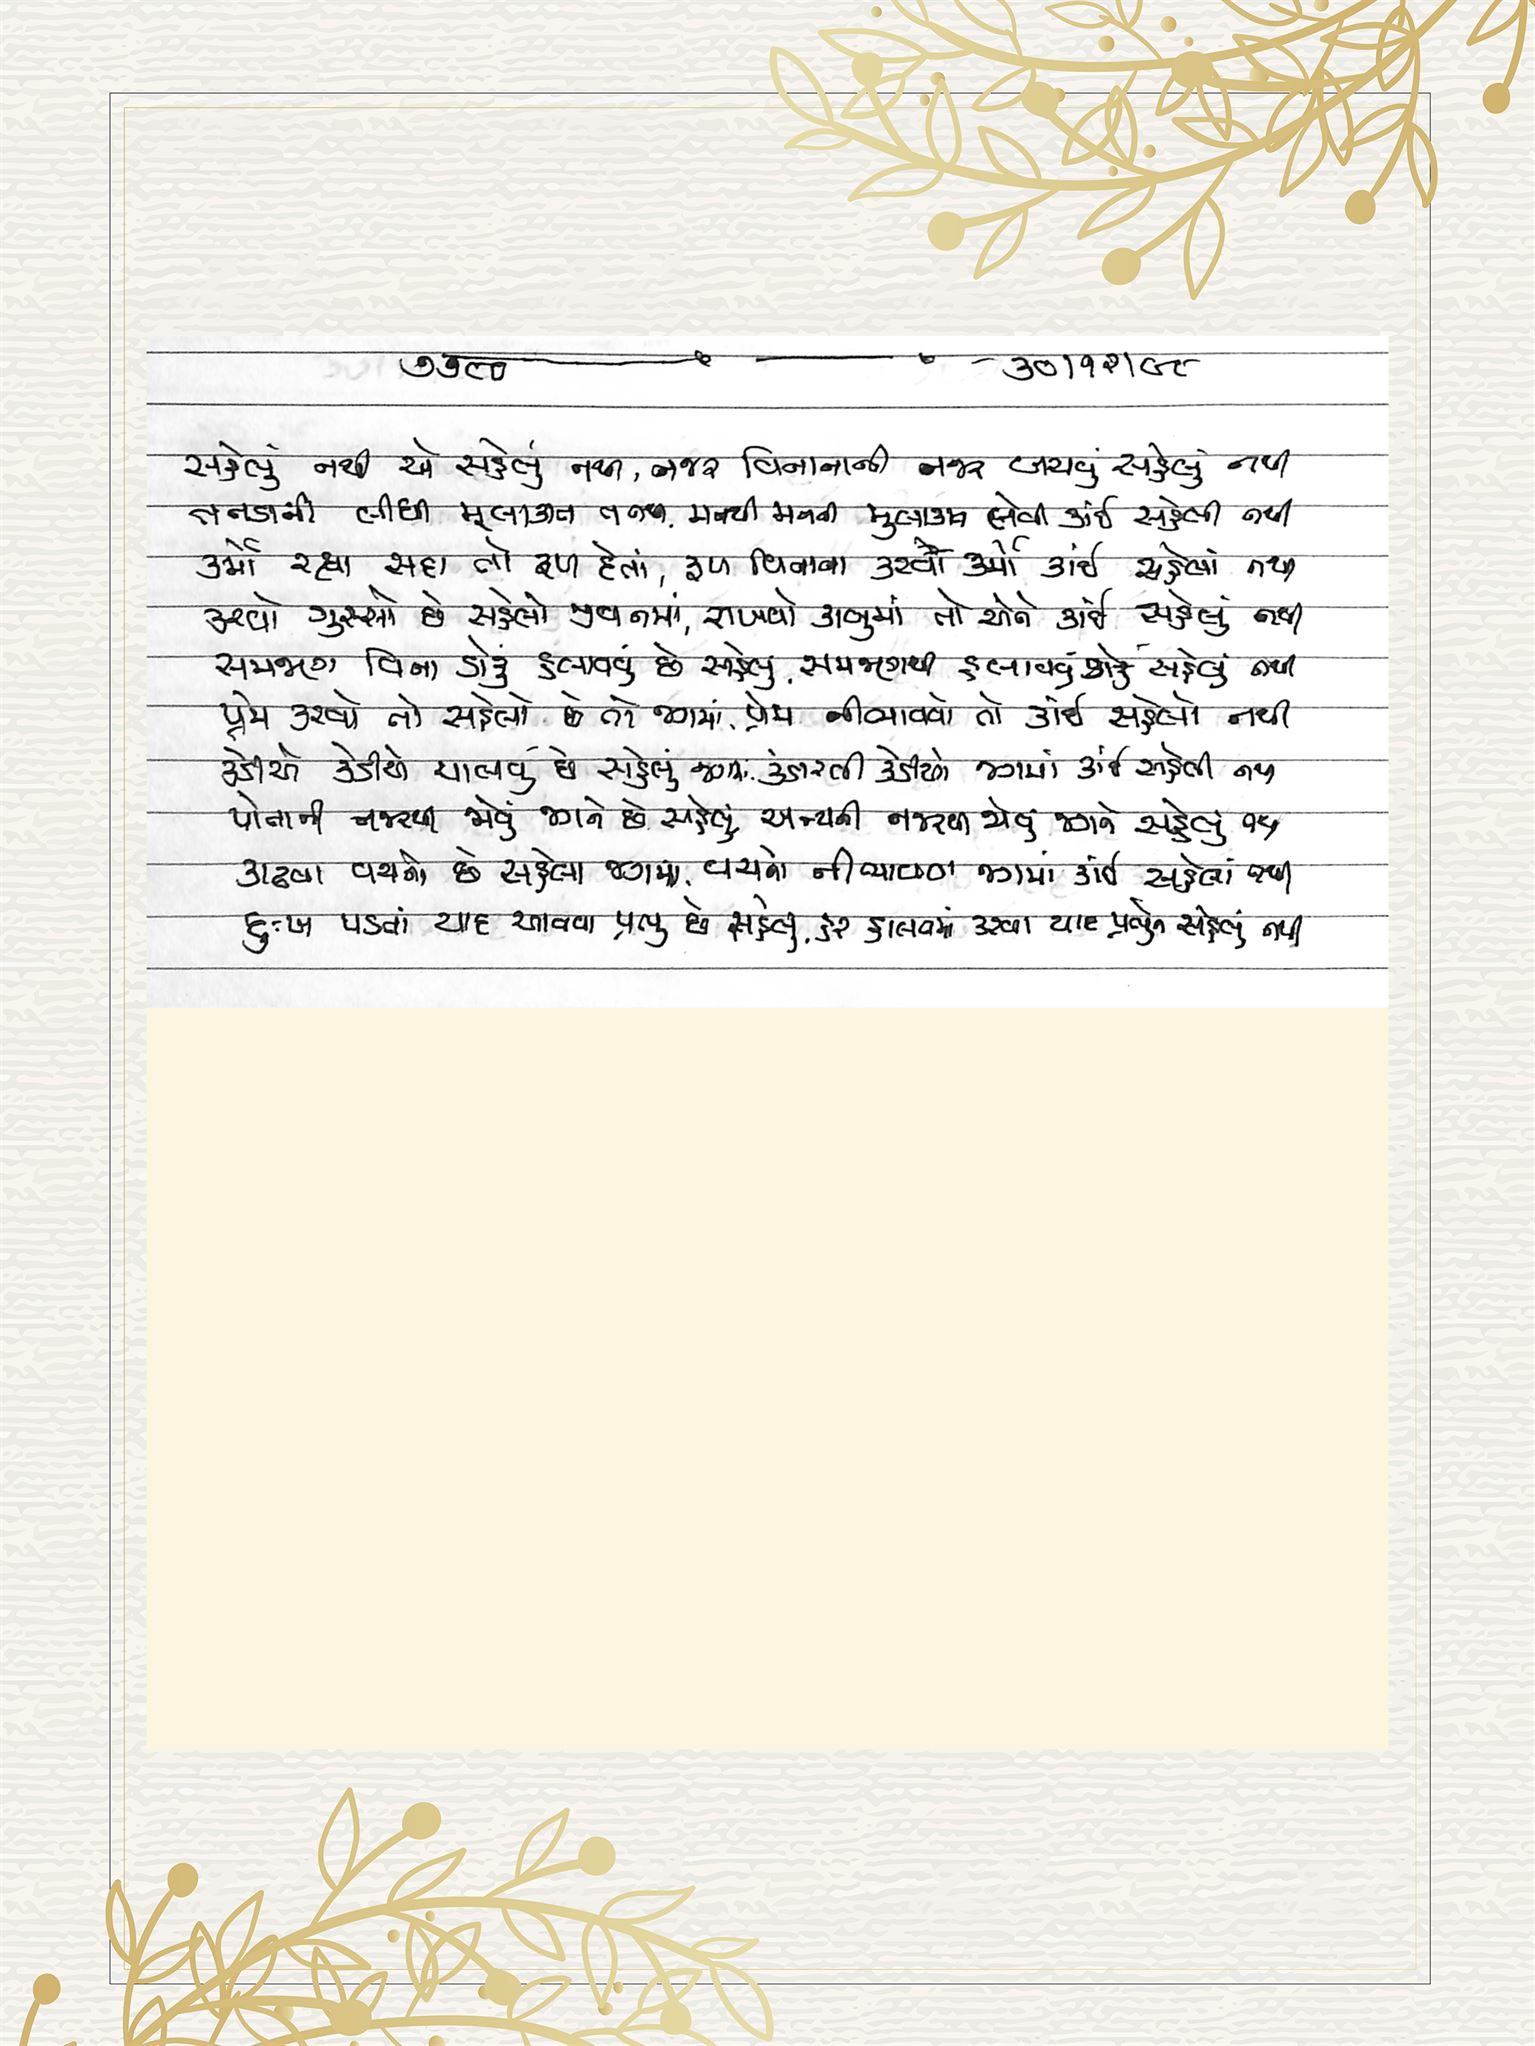 ૭૭૯૦ ૩૦|૧૨|૯૮
સહેલું નથી એ સહેલું નથી, નજર વિનાનાની નજર બચવું સહેલું નથી
તનડાની લીધી મુલાકાત તનથી, મનથી મનની મુલાકાત લેવી કાંઈ સહેલી નથી
કર્મો રહ્યા સદા તો ફળ દેતાં, ફળ વિનાના કરવાં કર્મો કાંઈ સહેલાં નથી
કરવો ગુસ્સો છે સહેલો જીવનમાં, રાખવો કાબુમાં તો એને કાંઈ સહેલું નથી
સમજણ વિના ડોકું હલાવવું છે સહેલું, સમજણથી હલાવવું ડોકું સહેલું નથી
પ્રેમ કરવો તો સહેલો છે તો જગમાં, પ્રેમ નીભાવવો તો કાંઈ સહેલો નથી
કેડીએ કેડીએ ચાલવું છે સહેલું જગમાં, કંડારતી કેડીઓ જગમાં કાંઈ સહેલી નથી
પોતાની નજરથી જોવું જગને છે સહેલું, અન્યની નજરથી જોવું જગને સહેલું નથી
કાઢવા વચનો છે સહેલા જગમાં, વચનો નીભાવવા જગમાં કાંઈ સહેલાં નથી
દુઃખ પડતાં યાદ આવવા પ્રભુ છે સહેલું, હર હાલતમાં કરવા યાદ પ્રભુને સહેલું નથી